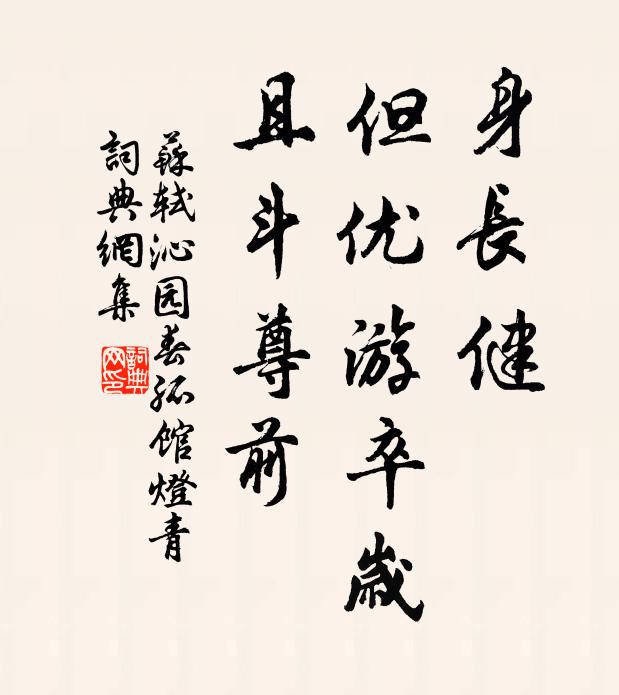 身長健
但优游卒歲
且斗尊前
蘇軾沁园春孤館燈青
詞典網集
詞典网印